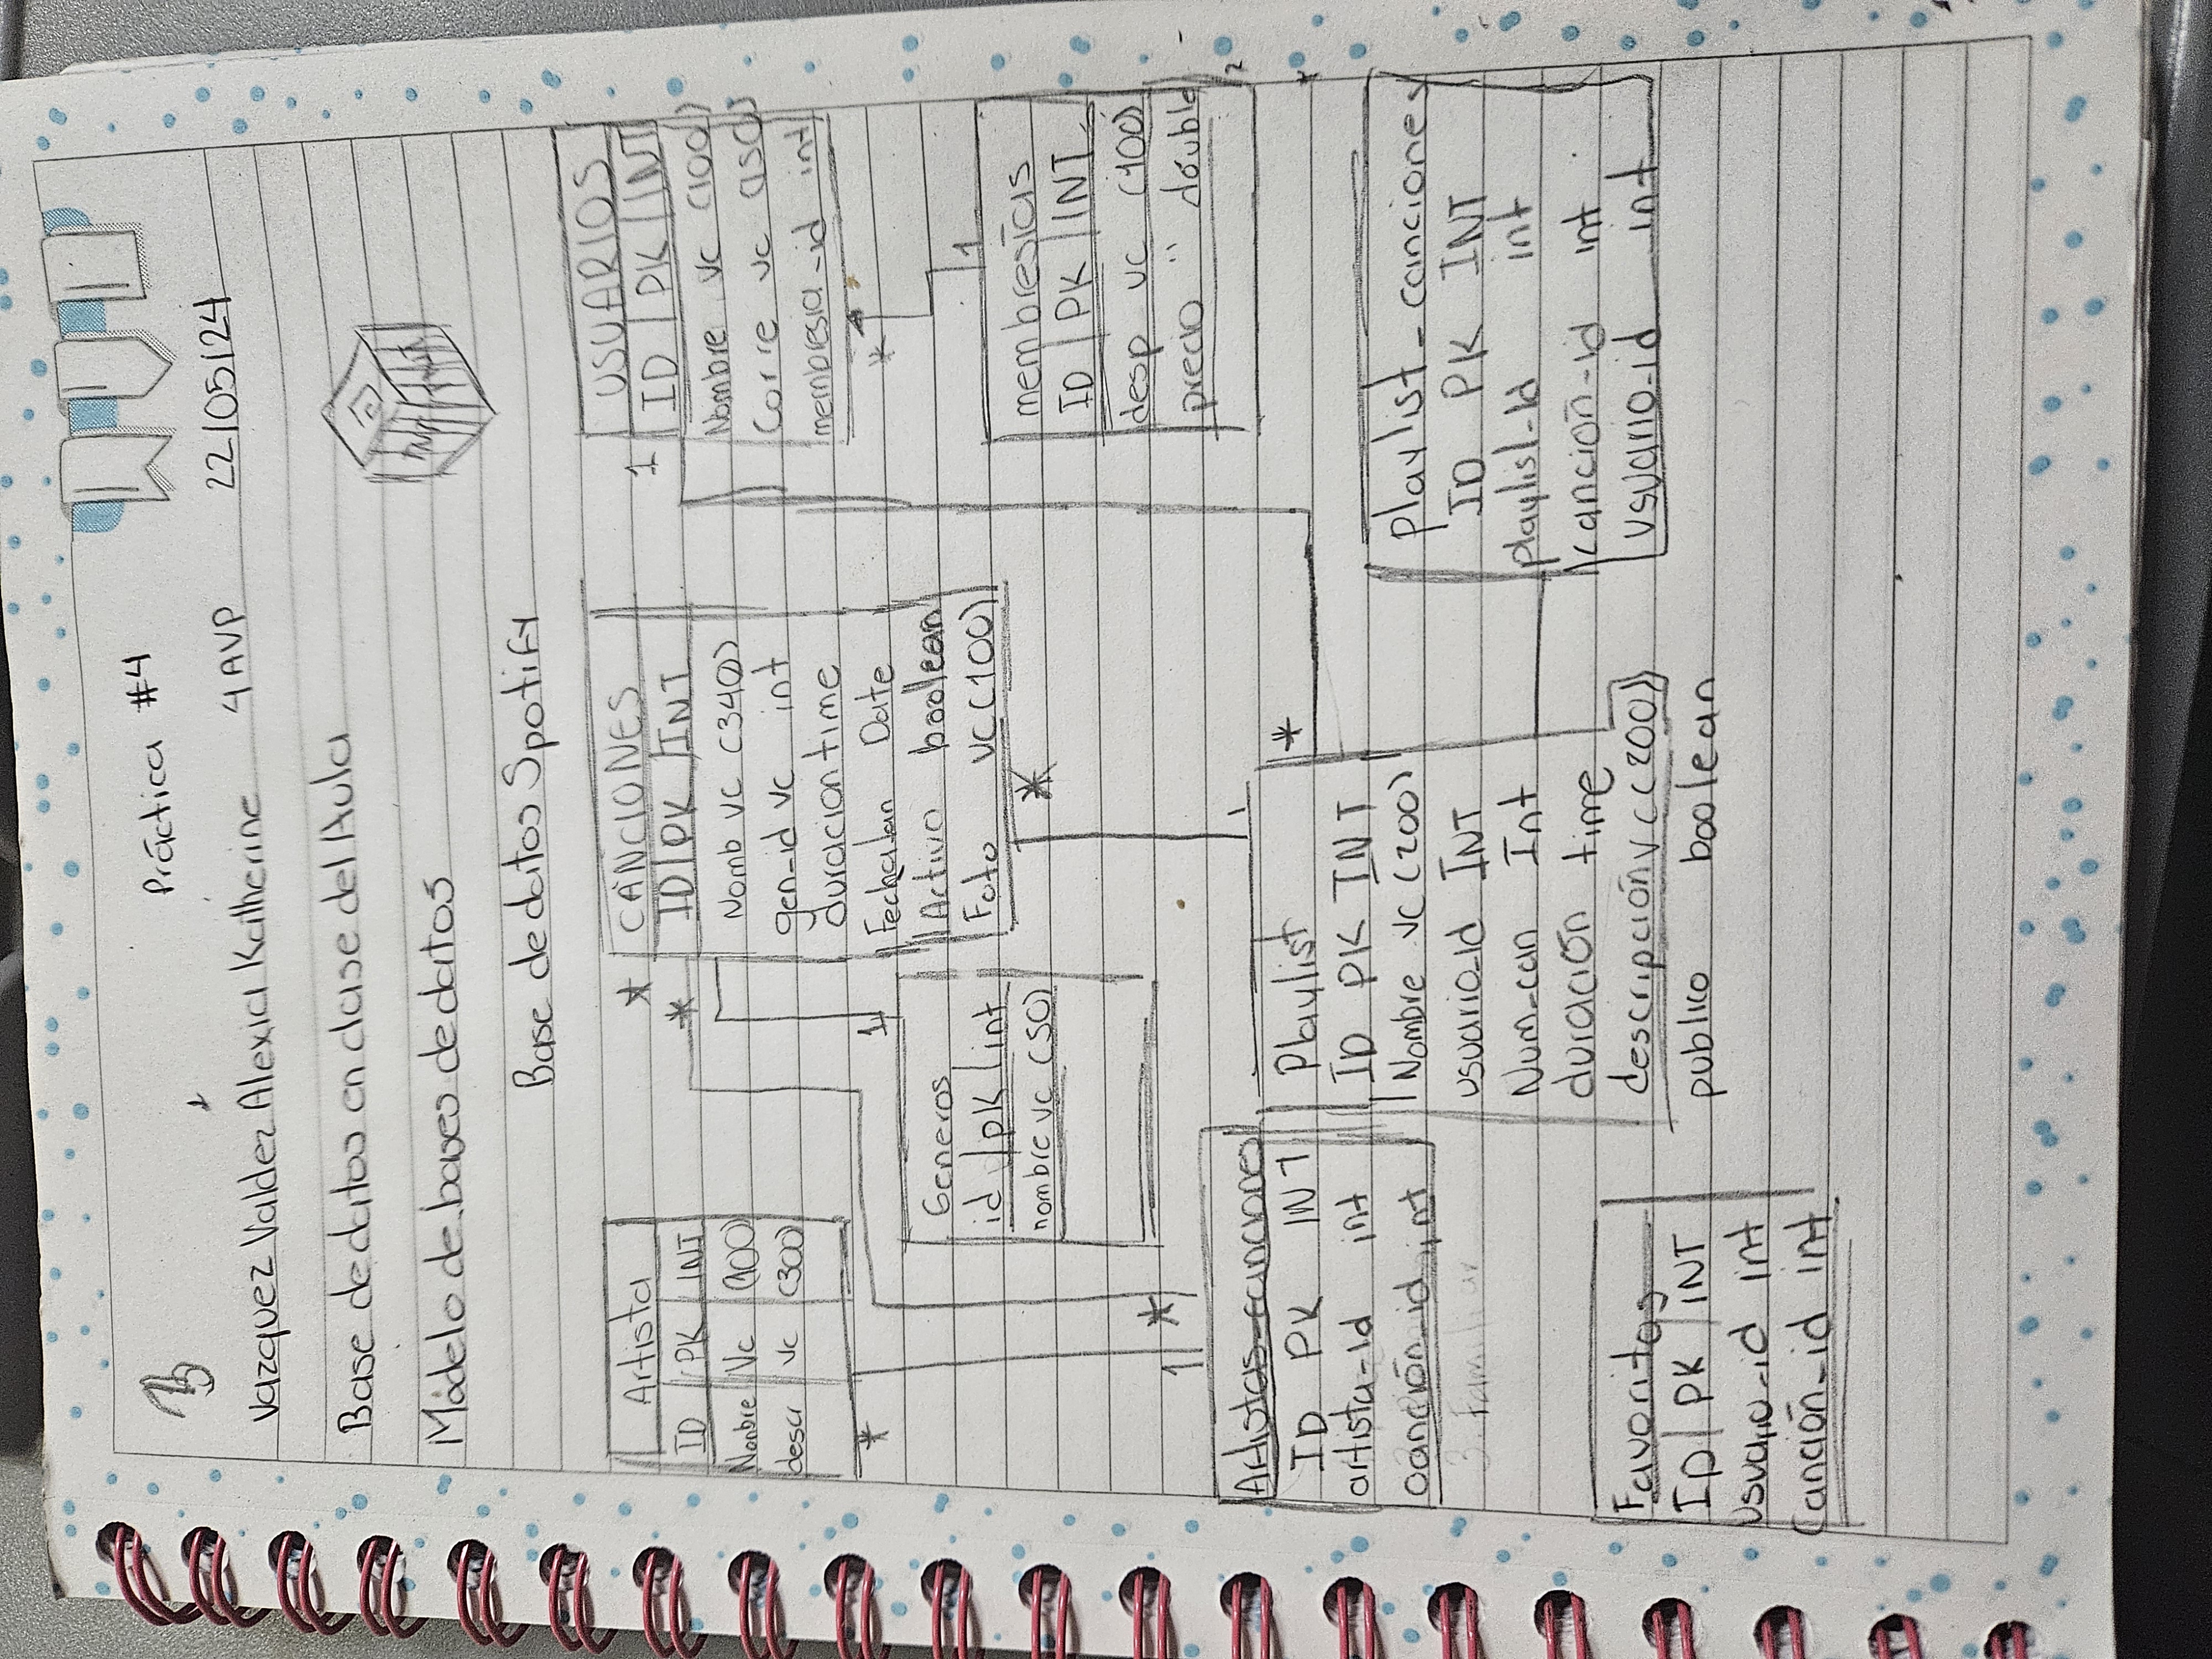 Práctica #4
Vazquez Valdez Alexia Katherine 4AVP 22/05/24
Base de datos en clase del Aula
Modelo de bases de datos
Base de datos Spotify
Artista
ID PK INT
Nonbre Vc (100)
descr vc (300)
*
1
*
*
CANCIONES
ID PK INT
Nomb vc (340)
gen-id vc int
duracion time
Fechalan Date
Activo boolean
Foto vc (100)
*
1
Generos
id pk int
nombre vc (50)
1
USUARIOS
ID PK INT
Nombre vc (100)
Corre vc (150)
membresia-id int
*
1
membresias
ID PK INT
desp vc (100)
precio " double
1
*
Artistas-canciones
ID PK INT
artista-id int
canción-id int
3. Familiar
Playlist
ID PK INT
Nombre vc (200)
usuario-id INT
Num-can Int
duración time
descripción vc (200)
publico boolean
*
Playlist-canciones
ID PK INT
playlist-Id int
canción-id int
usuario-id int
Favoritos
ID PK INT
usuario-id int
canción-id int